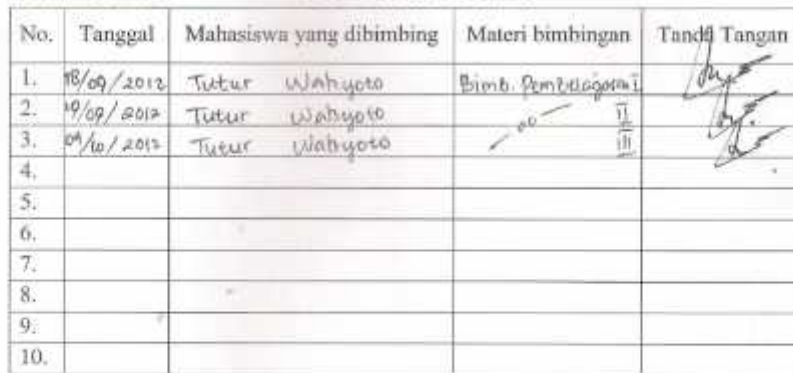 No. Tanggal Mahasiswa yang dibimbing Materi bimbingan Tanda Tangan
1. 18/09/2012 Tutur Wahyoto Bimb. Pembelajaran I
2. 19/09/2012 Tutur Wahyoto — 00 — II
3. 04/10/2012 Tutur Wahyoto III
4.
5.
6.
7.
8.
9.
10.